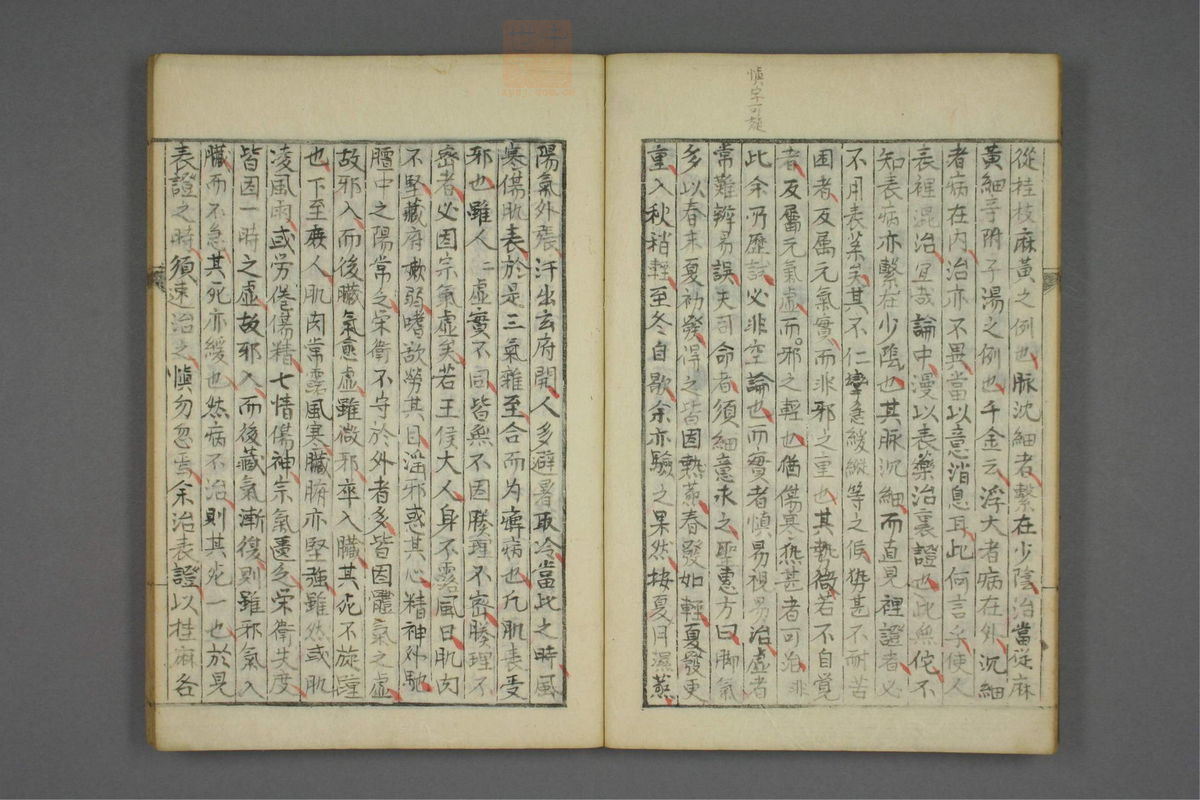 慎字可疑
從桂枝麻黃之例也脈沈細者繫在少陰治當從麻
黃細辛附子湯之例也千金云浮大者病在外沉細
者病在內治亦不異當以意消息耳此何言乎使人
表裡混治宜哉論中漫以表藥治裏證也此無佗不
知表病亦繫在少陰也其脈沉細而直見裡證者必
不用表藥矣其不仁攣急緩縱等之候勢甚不耐苦
困者反属元氣實而非邪之重也其勢微若不自覺
者反屬元氣虛而邪之輕也猶傷寒熱甚者可治非
此余所歷試必非空論也而實者慎易視易治虛者
常難辨易誤夫司命者須細意求之聖惠方曰脚氣
多以春末夏初發得之皆因熱蒸春發如輕夏發更
重入秋稍輕至冬自歇余亦驗之果然按夏月濕蒸
陽氣外張汗出玄府開人多避暑取冷當此之時風
寒傷肌表於是三氣雜至合而为痺病也凡肌表受
邪也雖人仁虛實不同皆無不因腠理不密腠理不
密者必因宗氣虛矣若王侯大人身不露風日肌肉
不堅藏府嫩弱嗜欲勞其目淫邪惑其心精神外馳
膻中之陽常之栄衛不守於外者多皆因體氣之虛
故邪入而後臟氣愈虛雖微邪卒入臟其死不旋踵
也下至庶人肌肉常露風寒臟腑亦堅強雖然或肌
凌風雨或労倦傷精七情傷神宗氣匱乏栄衛失度
皆因一時之虛故邪入而後藏氣漸復則雖邪氣入
臟而不急其死亦緩也然病不治則其死一也於見
表證之時須速治之慎勿忽焉余治表證以桂麻各